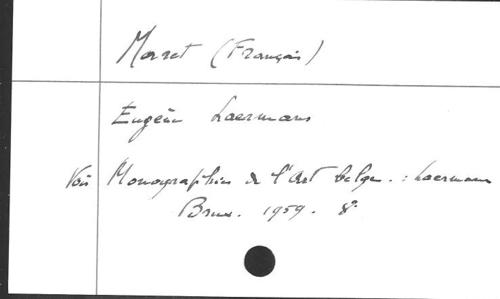 Morret (Français)
Eugène Laermans
Voir Monographies de l'Art belge. : Laermans
Brux. 1959. 8°